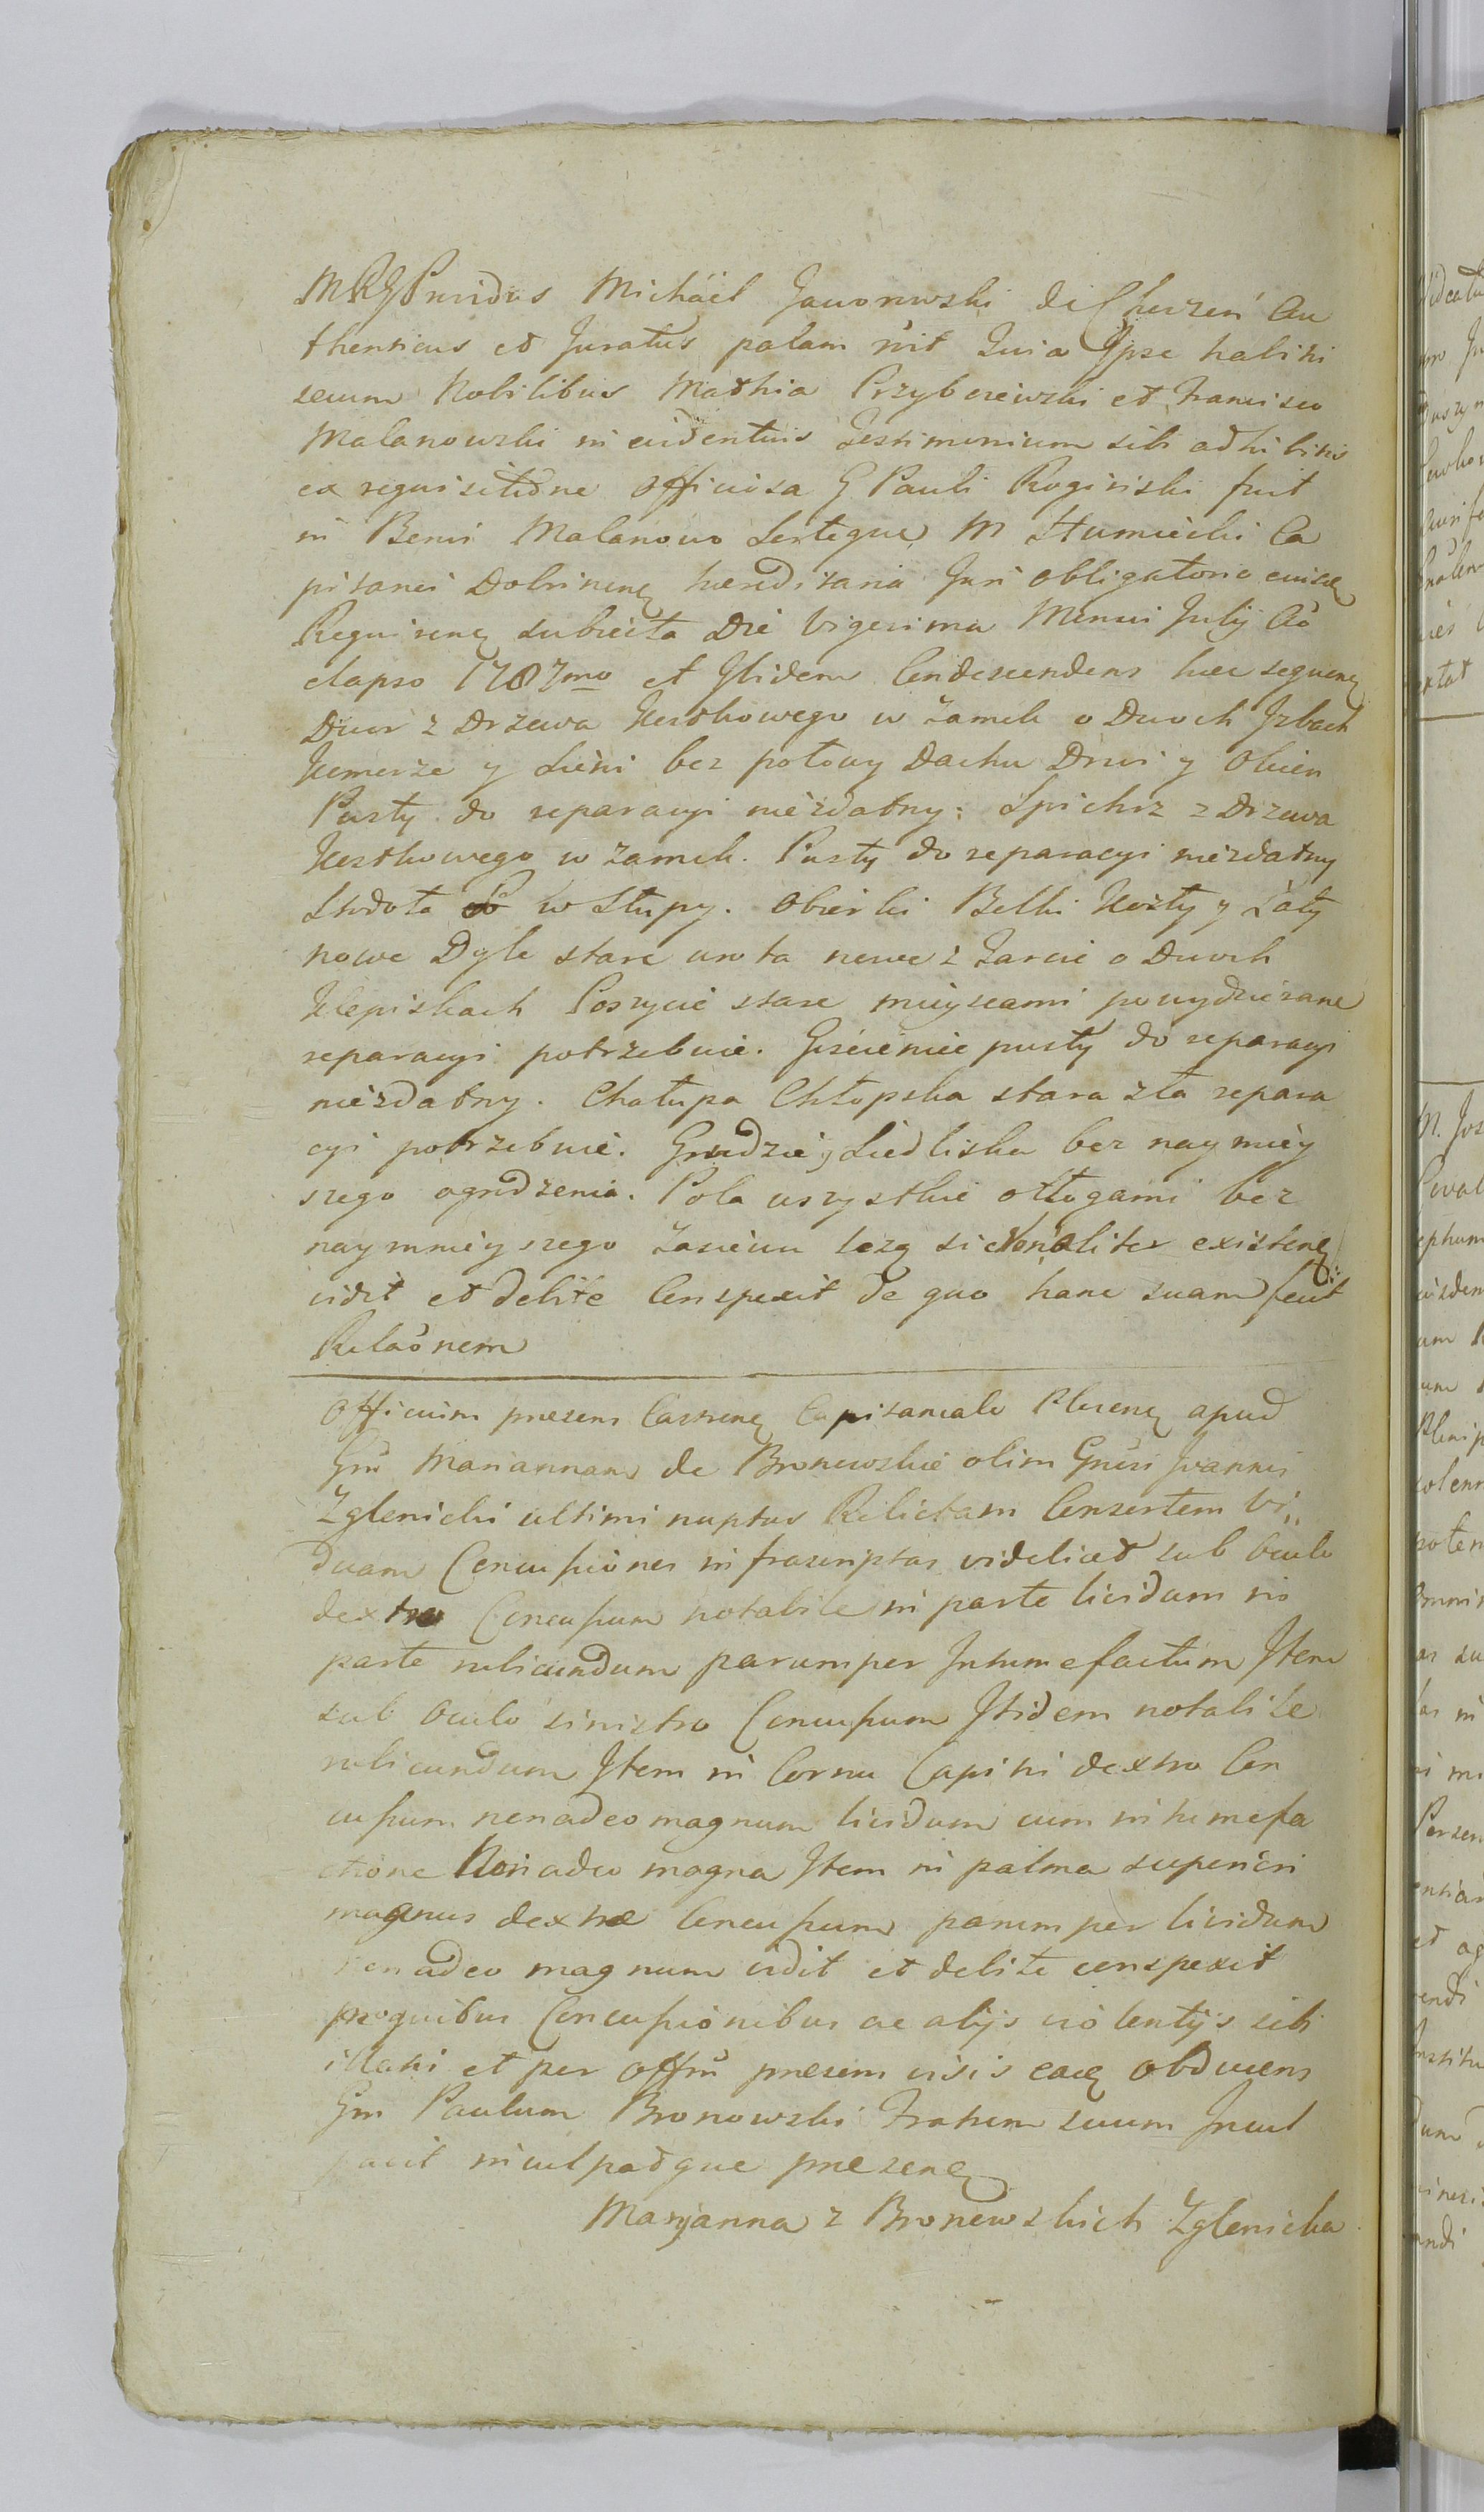 MRG Pruidus Michael Jaworowski de Churzeń Au
thenticus et Juratus palam rñit Quia Ipse habitis
secum Nobilibus Mathia Przybosiewski et Francisco
Malanowski in evidentius Testimonium sibi adhibitis
ex requisitione Officiosa G Pauli Rogiński fuit
in Bonis Malanowo Sorteque M Humiecki Ca
pitanei Dobrinen hereditaria Juri obligatorio eiusd
Requiren subiecta Die Vigesima Mensis Julij Ao
elapso 1787mo et Ibidem Condescendens haec sequen
Dwor z Drzewa Kostkowego w Zamek o Dwoch Jzbach
Komorze y Sieni bez połowy Dachu Drzwi y Okien
Pusty do reparacyi niezdatny: Spichrz z Drzewa
Kostkowego w Zamek. Pusty do reparacyi niezdatny
Stodoła w Słupy. Obierki Belki Kozły y Łaty
nowe Dyle stare wrota nowe z Zarcie o Dwoch
Klepiskach Poszycie stare mieyscami powydzierane
reparacyi potrzebuie. Gościeniec pusty do reparacyi
niezdatny. Chałupa Chłopska stara zła repara
cyi potrzebuie. Grodzie, Siedliska bez naymiey
szego ogrodzenia. Pola wszystkie odłogami bez
naymnieyszego Zasiewu lezą sic Venaliter existen
vidit et debite Conspexit de quo hanc suam fecit
Relaōnem
Officium praesens Castren Capitaneale Plocen apud
Gm Mariannam de Bronowskie olim Gnosi Joannis
Zglenicki ultimi nuptus Relictam Consortem Vi
duam Concussiones infrascriptas videlicet sub Oculo
dextro Concussum notabile in parte lividum in
parte rubicundum parumper Intumefactum Item
sub Oculo sinistro Concussum Itidem notabile
rubicundum Item in Cornu Capitis dextro Con
cussum non adeo magnum lividum cum intumefa
ctione Non adeo magna Item in palma superiori
magnus dextrae Concussum parumper lividum
non adeo magnum vidit et debite conspexit
pro quibus Concussionibus ac alijs violentijs sibi
illatis et per Offm praesens visis eaq obducens
Gm Paulum Bronowski Fratrem suum Incul
pavit inculpatque praesen
Maryanna z Bronowskich Zglenicka